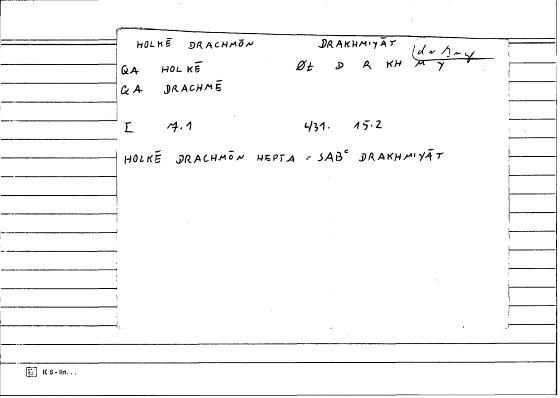 HOLKĒ DRACHMŌN DRAKHMIYĀT
QA HOLKĒ Øt D R KH M Y
QA DRACHMĒ
I 7.1 431. 15.2
HOLKĒ DRACHMŌN HEPTA = SABᶜ DRAKHMIYĀT
K 5 - lin...